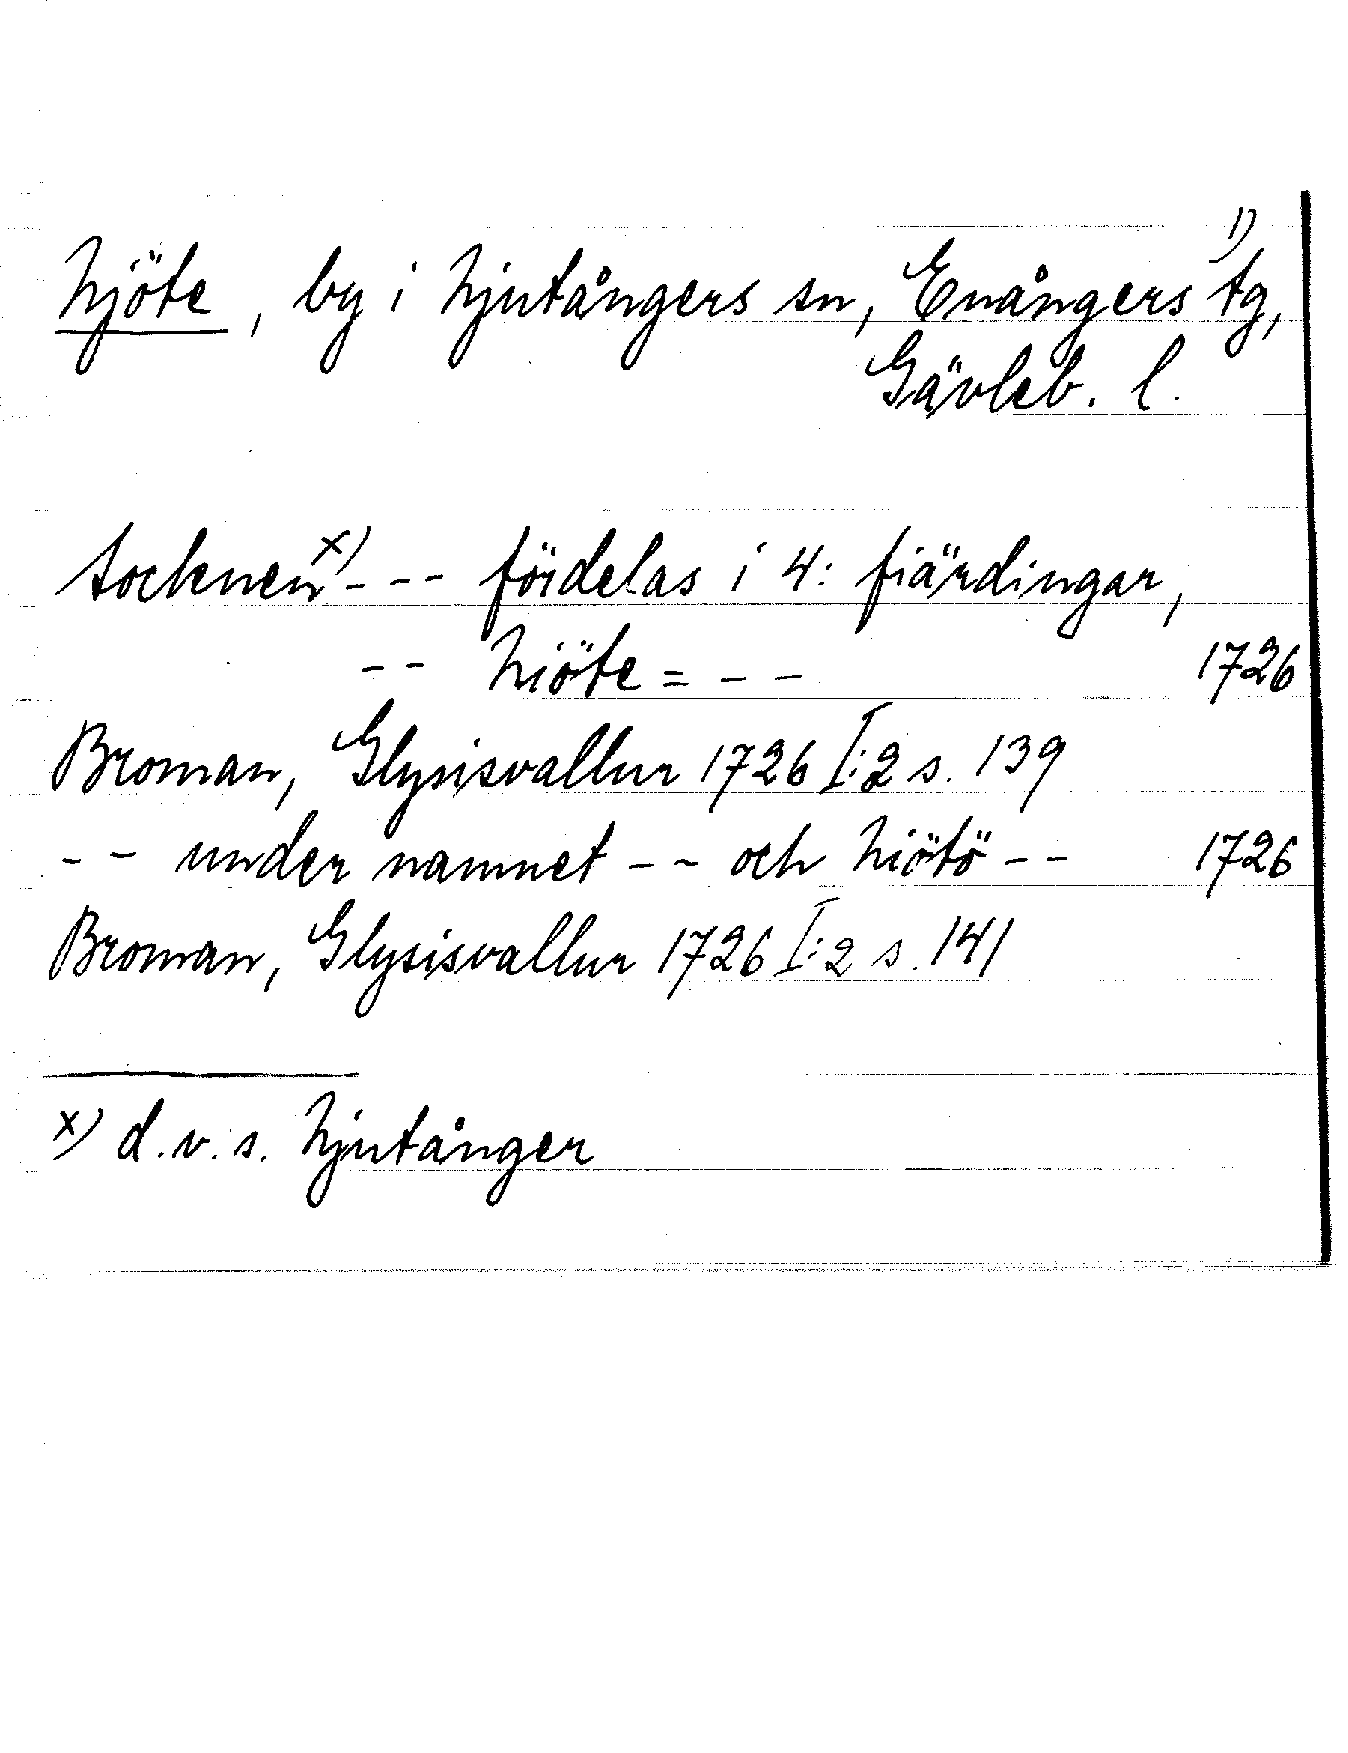 Hjöte, by i Hjutångers sn, Enångers tg,¹⁾
Gävleb. l.
Socknen ˣ⁾ - - - fördelas i 4: fiärdingar,
- - Hiöte = - - 1726
Broman, Glysisvallur 1726 I:2 s. 139
- - under namnet - - och Hiötö - - 1726
Broman, Glysisvallur 1726 I:2 s. 141
x) d.v.s. Hjutånger